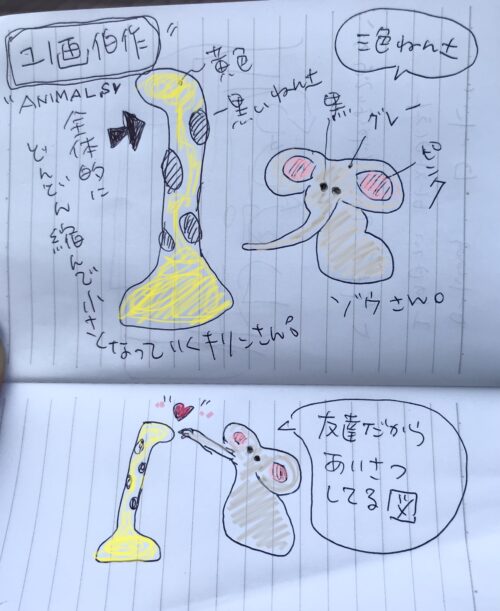 ユ1画伯作
"ANIMALS"
黄色
黒いねん土
三色ねん土
黒
グレー
ピンク
全体的に
どんどん縮んで小さくなっていくキリンさん。
ゾウさん。
友達だから
あいさつ
してる図